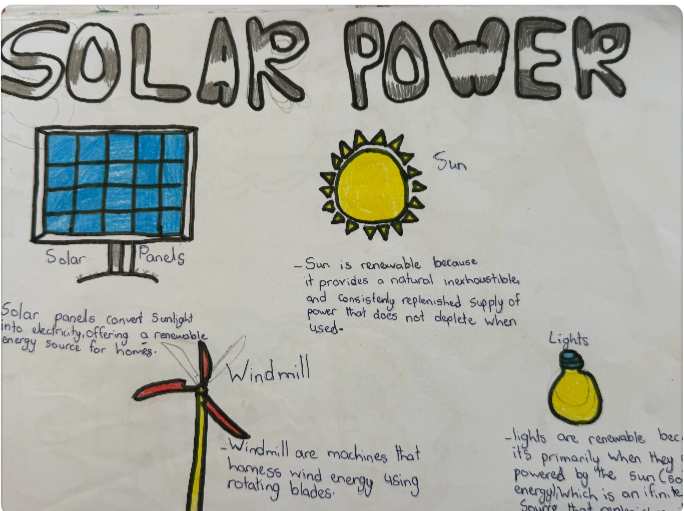 SOLAR POWER
Solar Panels
Sun
- Sun is renewable because
it provides a natural inexhaustible,
and consistenly replenished supply of
power that does not deplete when
used-
Solar panels convert sunlight
into electricity, offering a renewable
energy source for homes.
Windmill
- Windmill are machines that
harness wind energy using
rotating blades.
Lights
- lights are renewable
it's primarily when they
powered by the sun
energy), which is an ifinite